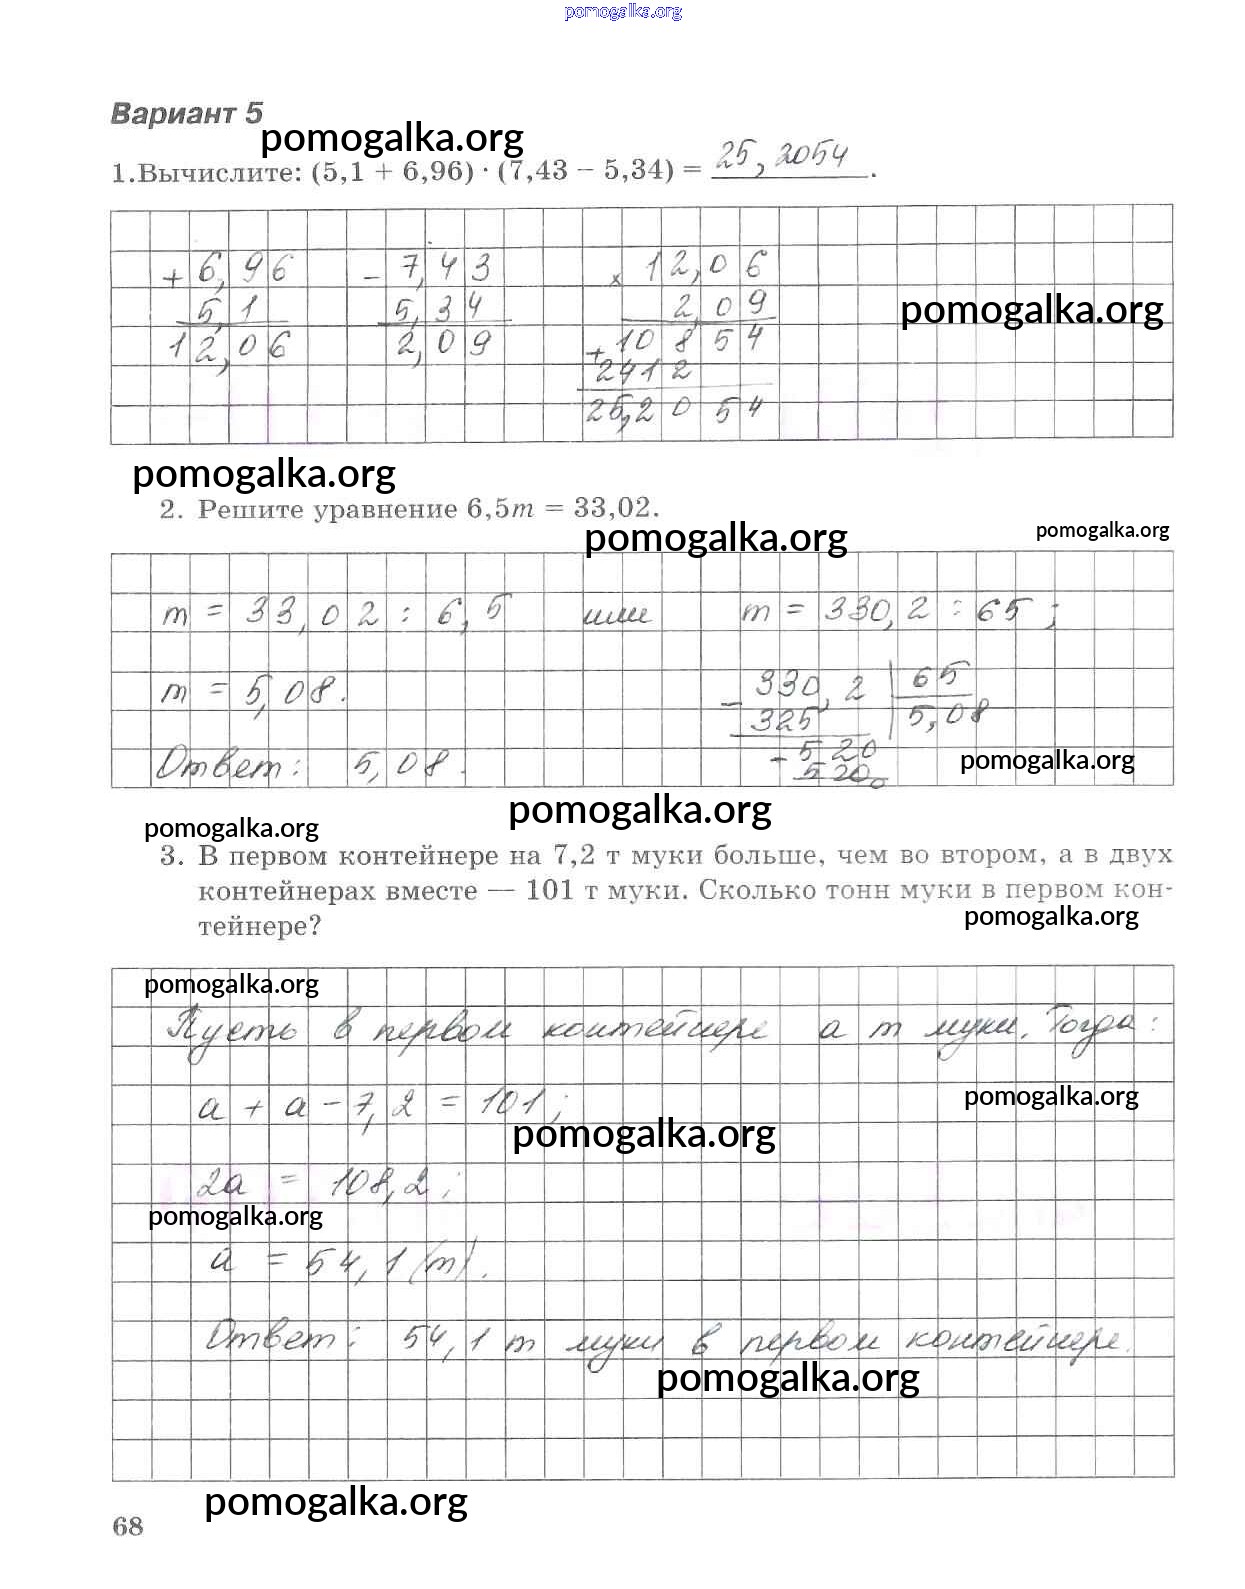 pomogalka.org
Вариант 5
pomogalka.org
1.Вычислите: (5,1 + 6,96) · (7,43 − 5,34) = 25,2054.
+ 6,96 − 7,43 × 12,06
5,1 5,34 2,09
pomogalka.org
12,06 2,09 + 10854
2412
25,2054
pomogalka.org
2. Решите уравнение 6,5m = 33,02.
pomogalka.org pomogalka.org
m = 33,02 : 6,5 или m = 330,2 : 65;
m = 5,08. − 330,2 65
325 5,08
− 520
Ответ: 5,08. 520
0
pomogalka.org
pomogalka.org
pomogalka.org
3. В первом контейнере на 7,2 т муки больше, чем во втором, а в двух
контейнерах вместе — 101 т муки. Сколько тонн муки в первом кон-
тейнере?
pomogalka.org
pomogalka.org
Пусть в первом контейнере а т муки. Тогда:
a + a − 7,2 = 101;
pomogalka.org
pomogalka.org
2a = 108,2;
pomogalka.org
a = 54,1 (т).
Ответ: 54,1 т муки в первом контейнере.
pomogalka.org
pomogalka.org
68